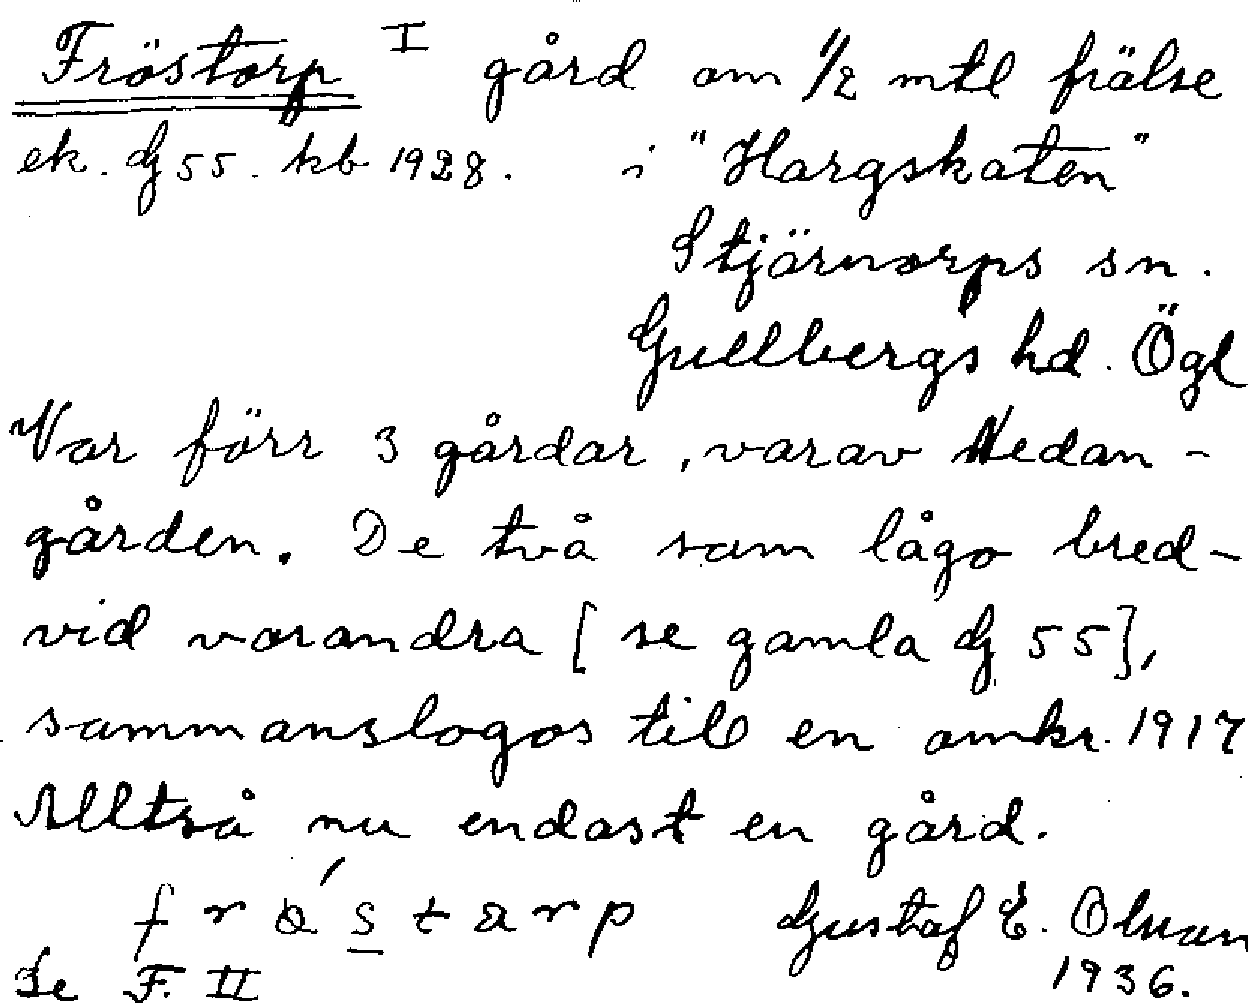 Fröstorp I gård om 1/2 mtl frälse
ek. dj 55. kb 1928. i "Hargskaten"
Stjärnorps sn.
Gullbergs hd. Ögl
Var förr 3 gårdar, varav Nedan-
gården. De två som lågo bred-
vid varandra [se gamla dj 55],
sammanslogos till en omkr. 1917
Alltså nu endast en gård.
Gustaf E. Olson
Se F. II 1936.